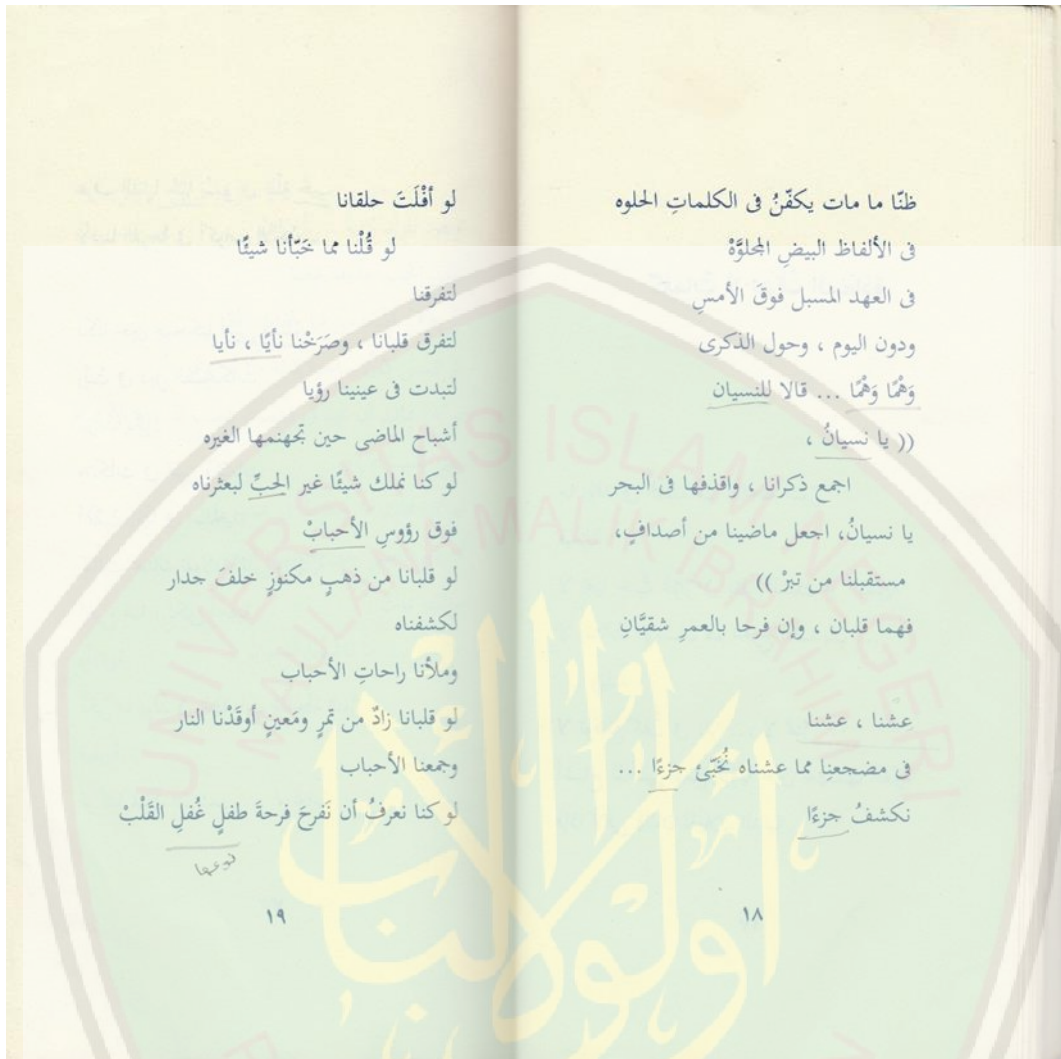 ظنّا ما مات يكفّنُ فى الكلماتِ الحلوه
فى الألفاظ البيضِ المجلوَّهْ
فى العهد المسبل فوقَ الأمسِ
ودون اليوم ، وحول الذكرى
وَهْمًا وَهْمًا ... قالا للنسيان
(( يا نسيانُ ،
اجمع ذكرانا ، واقذفها فى البحر
يا نسيانُ، اجعل ماضينا من أصدافٍ،
مستقبلنا من تبرْ ))
فهما قلبان ، وإن فرحا بالعمرِ شقيَّانِ
عشنا ، عشنا
فى مضجعنِا مما عشناه نُخَبّئ جزءًا ...
نكشفُ جزءًا
١٨
لو أفْلَتَ حلقانا
لو قُلْنا مما خَبّأنا شيئًا
لتفرقنا
لتفرق قلبانا ، وصَرَخْنا نأيًا ، نأيا
لتبدت فى عينينا رؤيا
أشباح الماضى حين تجهنمها الغيره
لو كنا نملك شيئًا غير الحبِّ لبعثرناه
فوق رؤوسِ الأحبابْ
لو قلبانا من ذهبٍ مكنوزٍ خلفَ جدار
لكشفناه
وملأنا راحاتِ الأحباب
لو قلبانا زادٌ من تمرٍ ومَعينٍ أوقَدْنا النار
وجمعنا الأحباب
لو كنا نعرفُ أن نَفرحَ فرحةَ طفلٍ غُفلِ القَلْبْ
١٩
UNIVERSITAS ISLAM NEGERI
MAULANA MALIK IBRAHIM
أولو الألباب